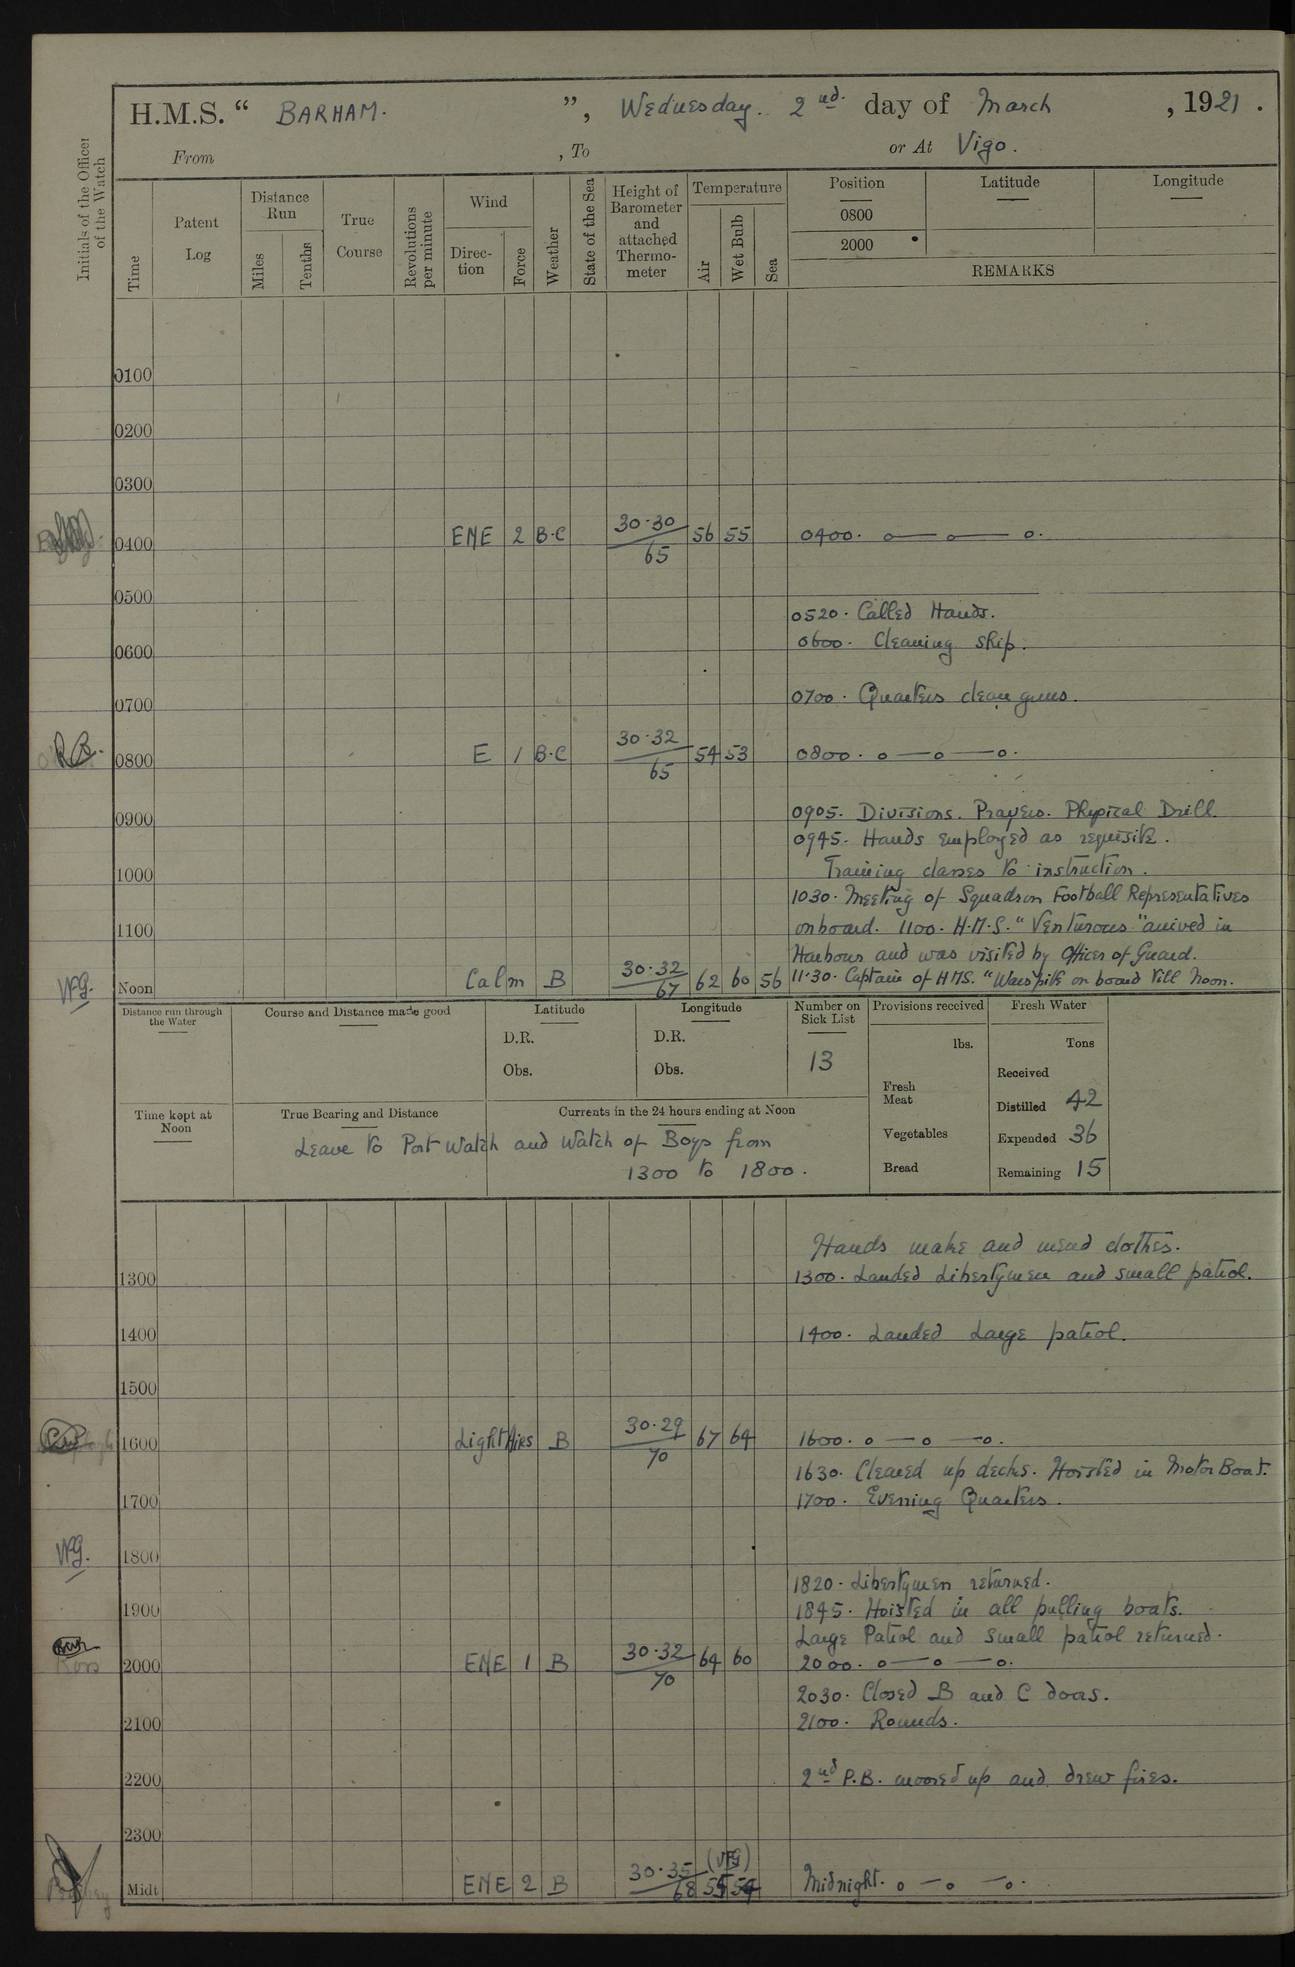 H.M.S. " BARHAM. ", Wednesday. 2nd. day of March , 1921 .
From , To or At Vigo.
Initials of the Officer of the Watch
Time
Patent Log
Distance Run
Miles
Tenths
True Course
Revolutions per minute
Wind
Direction
Force
Weather
State of the Sea
Height of Barometer and attached Thermometer
Temperature
Air
Wet Bulb
Sea
Position
Latitude
Longitude
0800
2000
REMARKS
0100
0200
0300
0400 ENE 2 B.C 30.30 65 56 55 0400. o — o — o.
0500
0520. Called Hands.
0600. Cleaning ship.
0600
0700. Quarters clean guns.
0700
0800 E 1 B.C 30.32 65 54 53 0800. o — o — o.
0905. Divisions. Prayers. Physical Drill.
0900
0945. Hands employed as requisite.
Training classes to instruction.
1000
1030. Meeting of Squadron Football Representatives
onboard. 1100. H.M.S. "Venturous" arrived in
1100
Harbour and was visited by Officer of Guard.
VFG. Noon Calm B 30.32 67 62 60 56 11.30. Captain of HMS. "Warspite on board till Noon.
Distance run through the Water
Course and Distance made good
Latitude
D.R.
Obs.
Longitude
D.R.
Obs.
Number on Sick List
13
Provisions received
lbs.
Fresh Meat
Vegetables
Bread
Fresh Water
Tons
Received
Distilled 42
Expended 36
Remaining 15
Time kept at Noon
True Bearing and Distance
Currents in the 24 hours ending at Noon
Leave to Port Watch and Watch of Boys from
1300 to 1800.
Hands make and mend clothes.
1300 1300. Landed Libertymen and small patrol.
1400 1400. Landed Large patrol.
1500
1600 Light Airs B 30.29 70 67 64 1600. o — o — o.
1630. Cleared up decks. Hoisted in Motor Boat.
1700 1700. Evening Quarters.
VFG. 1800
1820. Libertymen returned.
1900 1845. Hoisted in all pulling boats.
Large Patrol and Small patrol returned.
2000 ENE 1 B 30.32 70 64 60 2000. o — o — o.
2030. Closed B and C doors.
2100 2100. Rounds.
2200 2nd P.B. moored up and drew fires.
2300
(VFG)
Midt ENE 2 B 30.35 68 Midnight. o — o — o.